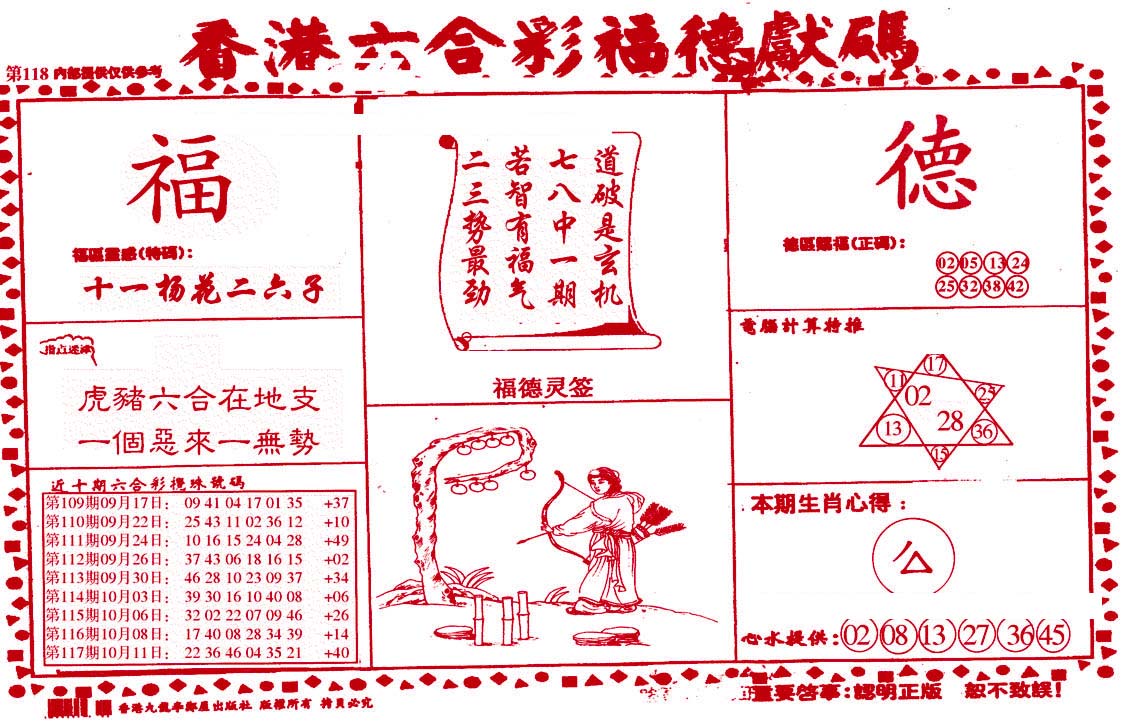 香港六合彩福德獻碼
第118 內部提供仅供參考
福
福區靈感(特碼):
十一杨花二六子
指点迷津
虎豬六合在地支
一個惡來一無勢
近十期六合彩攪珠號碼
第109期09月17日: 09 41 04 17 01 35 +37
第110期09月22日: 25 43 11 02 36 12 +10
第111期09月24日: 10 16 15 24 04 28 +49
第112期09月26日: 37 43 06 18 16 15 +02
第113期09月30日: 46 28 10 23 09 37 +34
第114期10月03日: 39 30 16 10 40 08 +06
第115期10月06日: 32 02 22 07 09 46 +26
第116期10月08日: 17 40 08 28 34 39 +14
第117期10月11日: 22 36 46 04 35 21 +40
道破是玄机
七八中一期
若智有福气
二三势最劲
福德灵签
德
德區賜福(正碼):
02 05 13 24
25 32 38 42
電腦計算特推
17
11 02 25
13 28 36
15
本期生肖心得:
公
心水提供: 02 08 13 27 36 45
重要啓事:認明正版 恕不致誤!
版權所有 拷貝必究